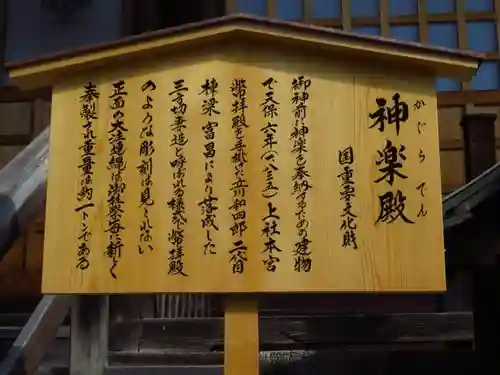 神楽殿
かぐらでん
国重要文化財
御神前に神楽を奉納するための建物
で天保六年(一八三五)上社本宮
幣拝殿を手掛た立川和四郎二代目
棟梁富昌により落成した
三方切妻造と呼ばれる様式で幣拝殿
のような彫刻は見られない
正面の大注連縄は御柱祭毎に新しく
奉製され重量は約一トンである